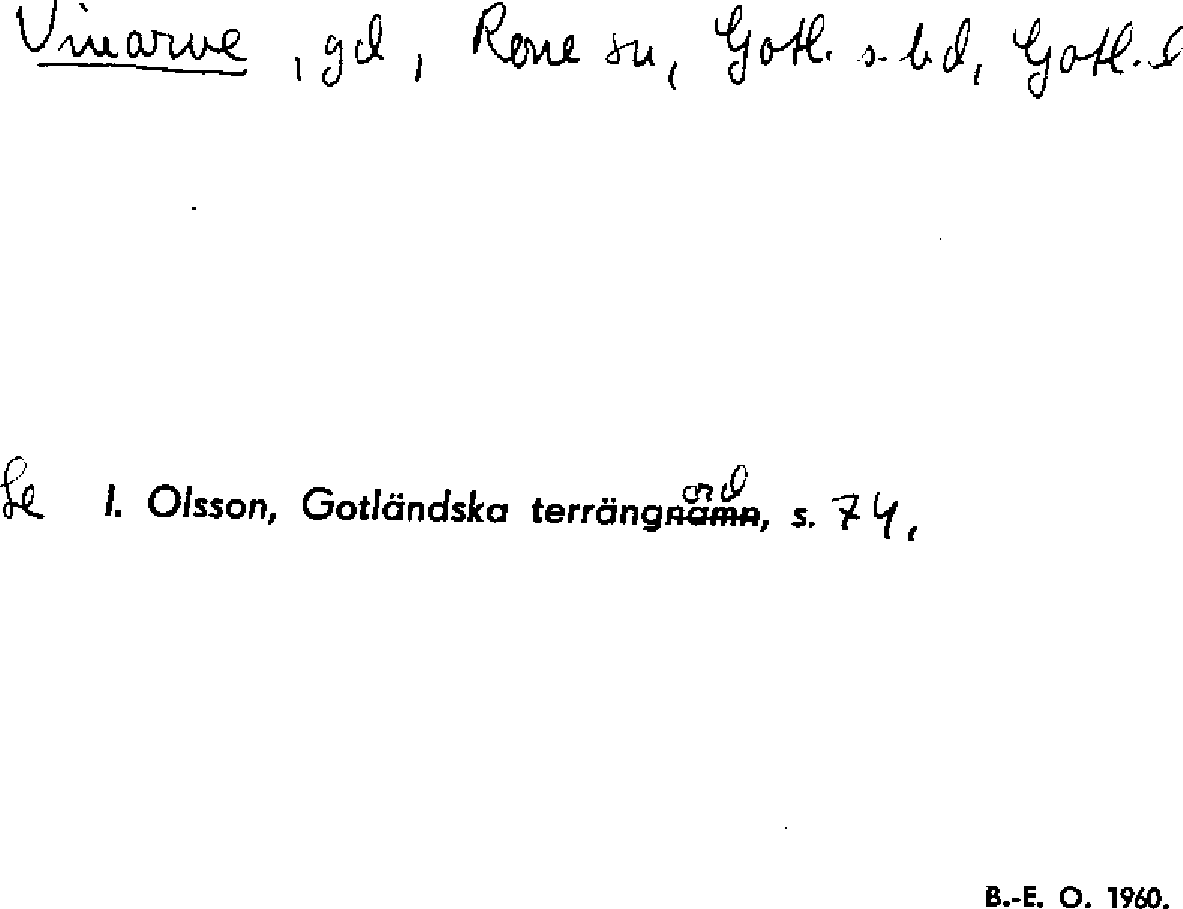 Vinarve, gd, Rone sn, Gotl. s. bd, Gotl. l
Se I. Olsson, Gotländska terrängord, s. 74.
B.-E. O. 1960.